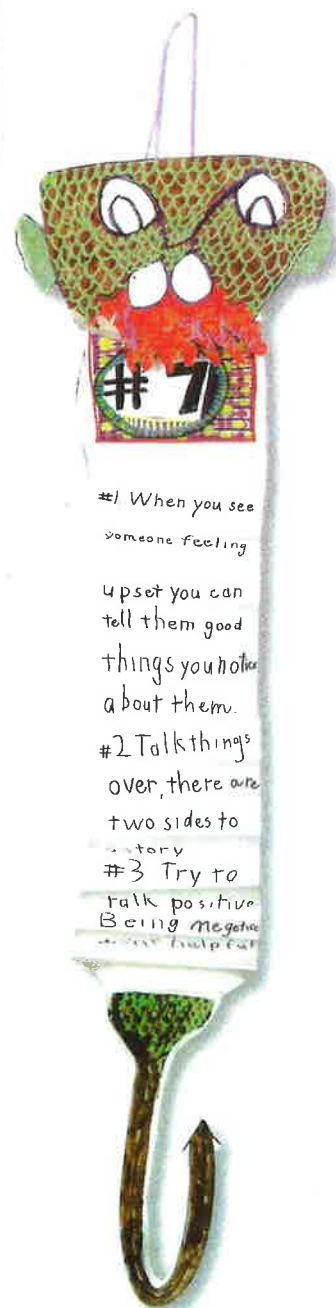 # 7
#1 When you see
someone feeling
upset you can
tell them good
things you notice
about them.
#2 Talk things
over, there are
two sides to
story
#3 Try to
talk positive
Being negative
helpful